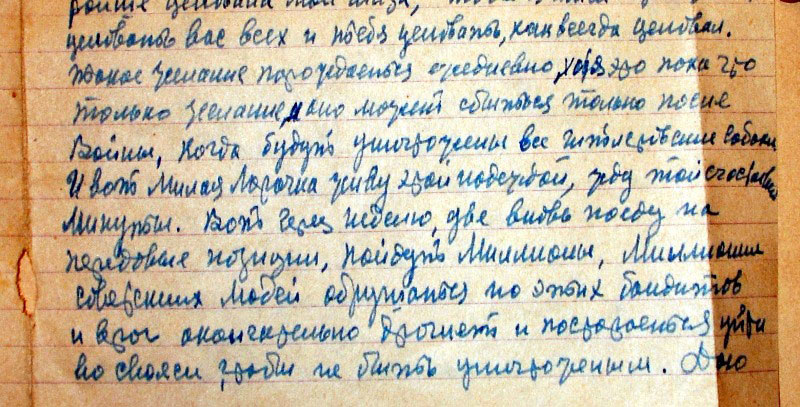 целовать вас всех и тебя целовать, как всегда целовал.
Такое желание порождается ежедневно, хотя это пока что
только желание, и оно может сбыться только после
войны, когда будут уничтожены все гитлеровские собаки
И вот милая Лорочка живу этой надеждой, жду той счастливой
минуты. Вот через неделю, две вновь поеду на
передовые позиции, пойдут миллионы, миллионы
советских людей обрушаться на этих бандитов
и враг окончательно дрогнет и постарается уйти
во свояси, чтобы не быть уничтоженным. Даю